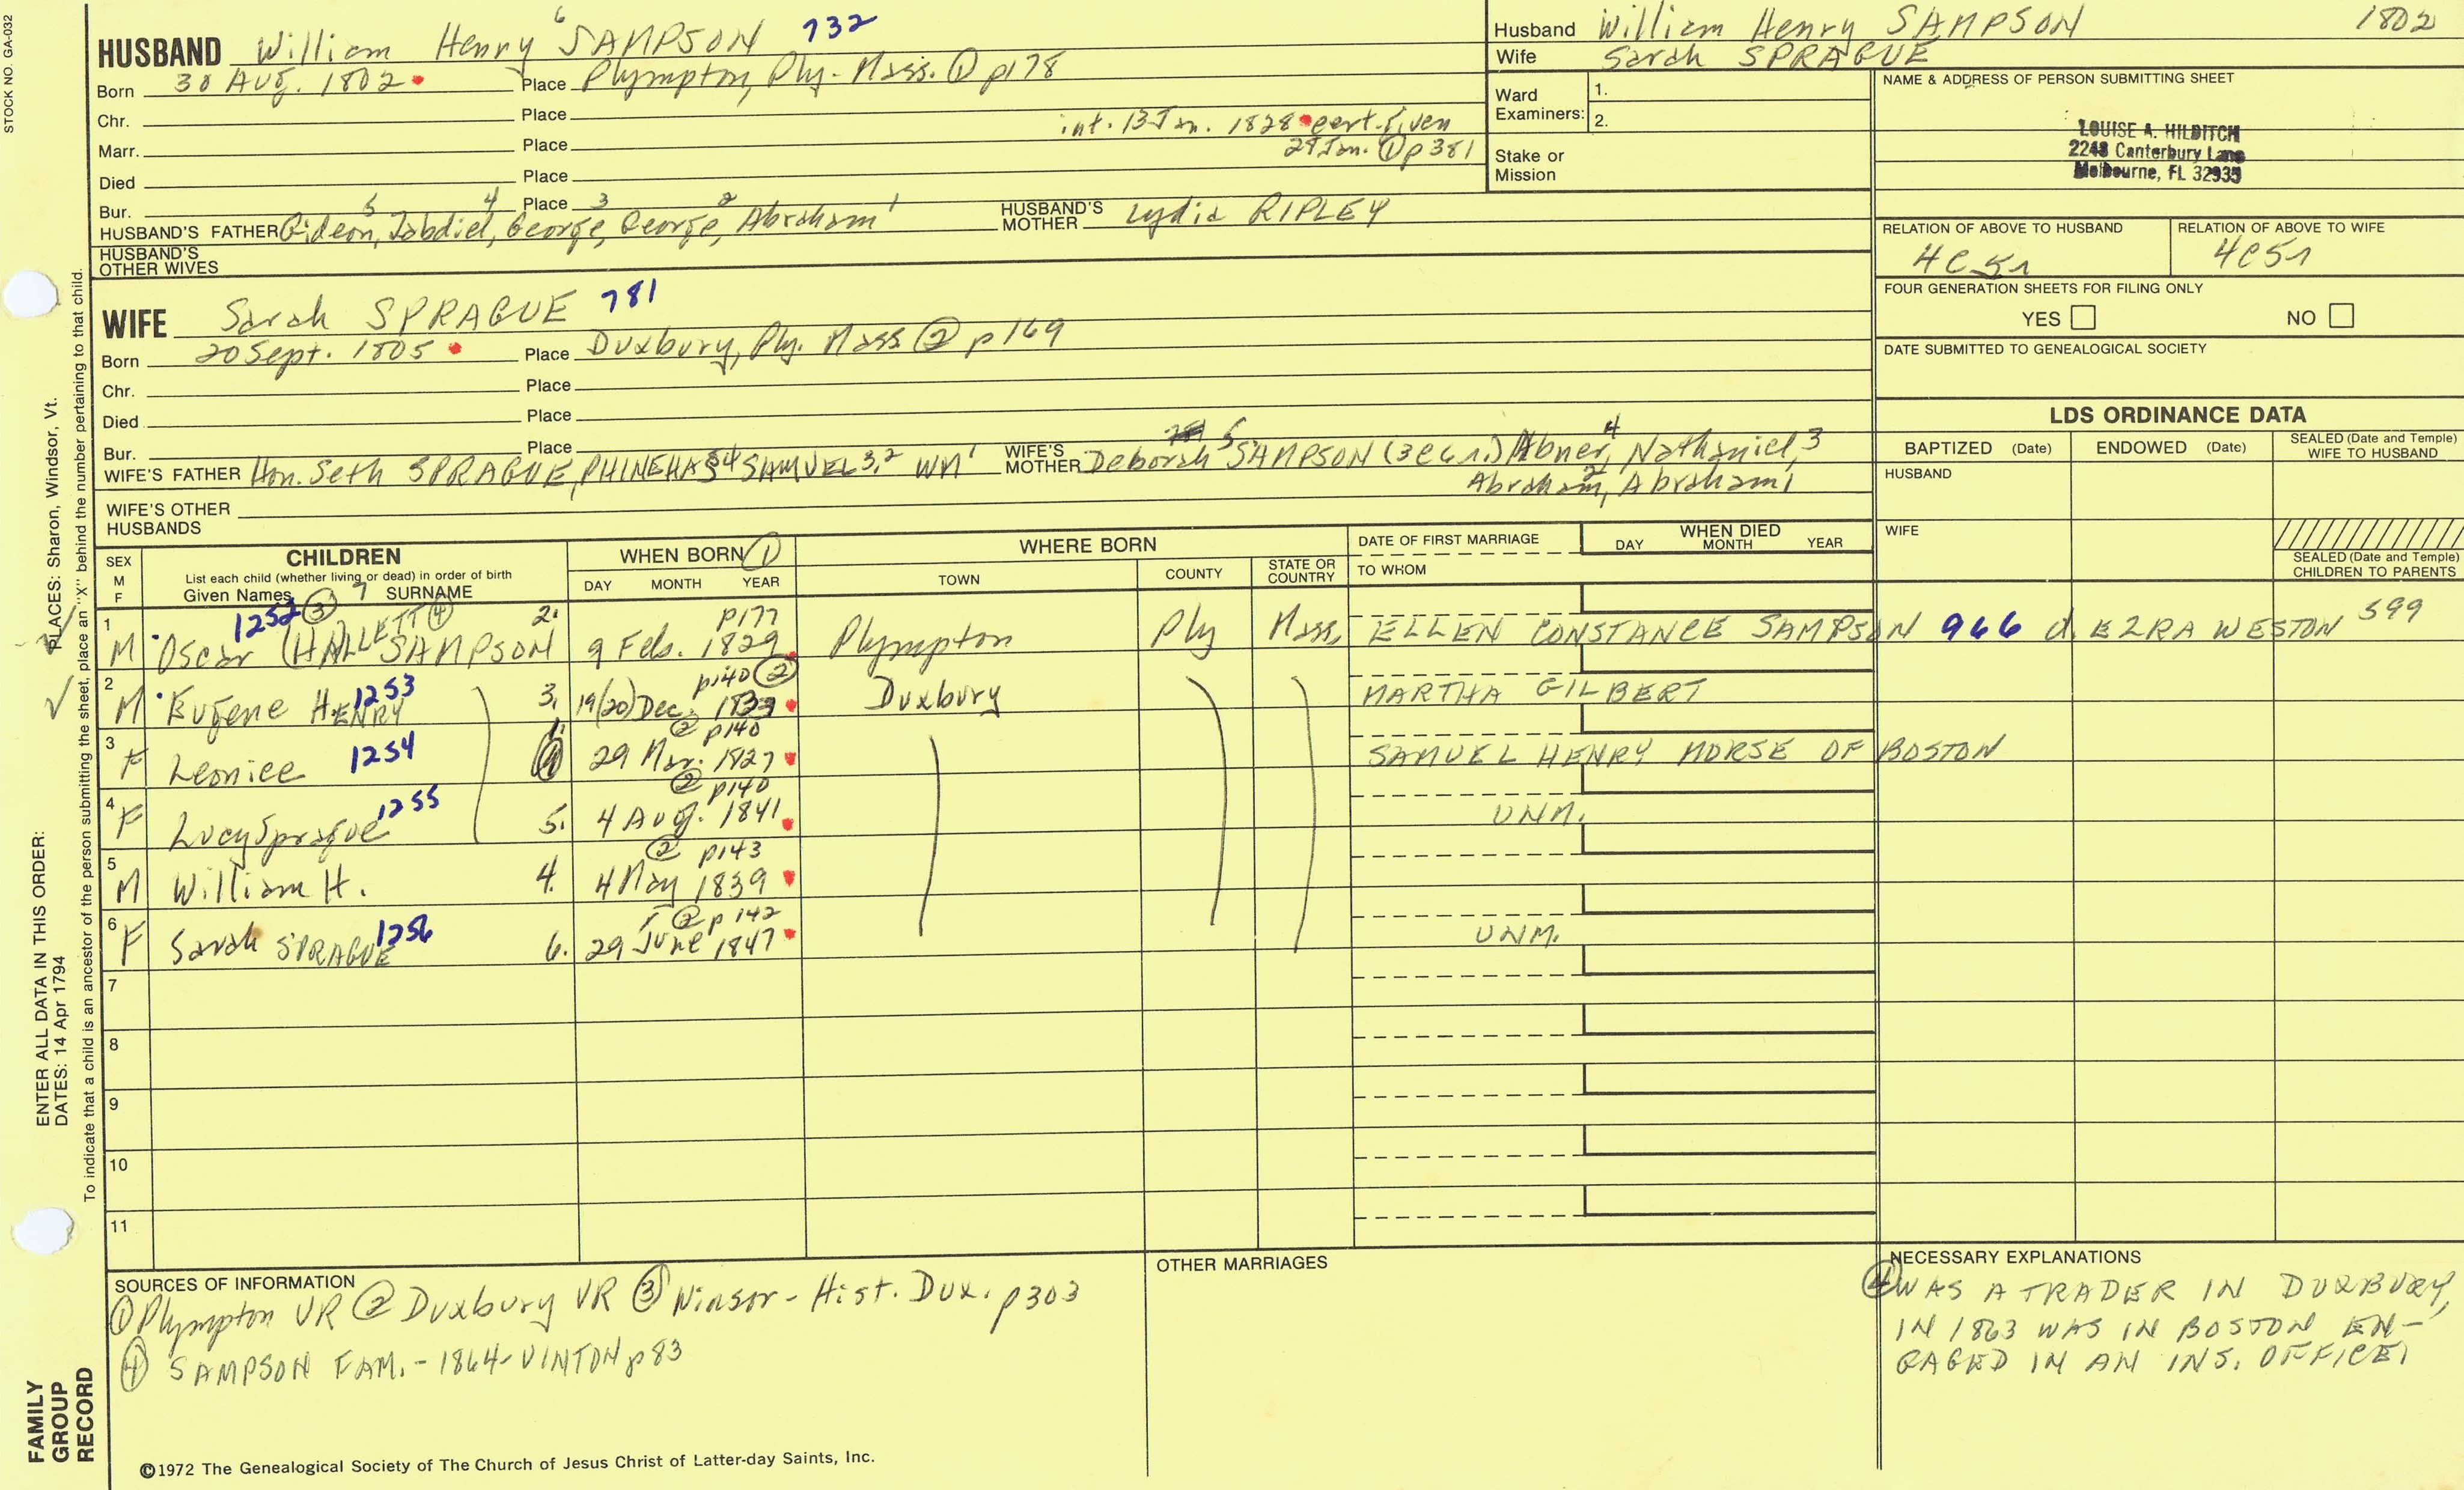 STOCK NO. GA-032
HUSBAND William Henry 6 SAMPSON 732
Born 30 Aug. 1802 Place Plympton, Ply. Mass. ① p178
Chr. Place
int. 13 Jan. 1828 cert. given
Marr. Place 29 Jan. ① p381
Died Place
Bur. Place
HUSBAND'S FATHER Gideon, 5 Zabdiel, 4 George, 3 George, 2 Abraham 1 HUSBAND'S MOTHER Lydia RIPLEY
HUSBAND'S OTHER WIVES
Husband William Henry SAMPSON 1802
Wife Sarah SPRAGUE
Ward Examiners: 1.
2.
Stake or Mission
NAME & ADDRESS OF PERSON SUBMITTING SHEET
LOUISE A. HILDITCH
2248 Canterbury Lane
Melbourne, FL 32935
RELATION OF ABOVE TO HUSBAND RELATION OF ABOVE TO WIFE
4C5r 4C5r
FOUR GENERATION SHEETS FOR FILING ONLY
YES NO
DATE SUBMITTED TO GENEALOGICAL SOCIETY
WIFE Sarah SPRAGUE 781
Born 20 Sept. 1805 Place Duxbury, Ply. Mass ② p169
Chr. Place
Died Place
Bur. Place
WIFE'S FATHER Hon. Seth SPRAGUE, PHINEHAS 4 SAMUEL 3,2 WM 1 WIFE'S MOTHER Deborah 5 SAMPSON (3C6r.) Abner, 4 Nathaniel, 3
Abraham, 2 Abraham 1
WIFE'S OTHER HUSBANDS
LDS ORDINANCE DATA
BAPTIZED (Date) ENDOWED (Date) SEALED (Date and Temple) WIFE TO HUSBAND
HUSBAND
WIFE
SEALED (Date and Temple) CHILDREN TO PARENTS
SEX M F CHILDREN WHEN BORN ① WHERE BORN DATE OF FIRST MARRIAGE WHEN DIED
List each child (whether living or dead) in order of birth
Given Names 7 SURNAME DAY MONTH YEAR TOWN COUNTY STATE OR COUNTRY TO WHOM DAY MONTH YEAR
1252 ③ ④ p177
1 M Oscar (HALLETT SAMPSON 2. 9 Feb. 1829 Plympton Ply Mass, ELLEN CONSTANCE SAMPSON 966 d. EZRA WESTON 599
p140 ②
2 M Eugene HENRY 1253 3. 19(20) Dec. 1833 Duxbury MARTHA GILBERT
② p140
3 F Leonice 1254 1. 29 Mar. 1827 SAMUEL HENRY MORSE OF BOSTON
② p140
4 F Lucy Sprague 1255 5. 4 Aug. 1841 UNM.
② p143
5 M William H. 4. 4 May 1839
② p142
6 F Sarah SPRAGUE 1256 6. 29 June 1847 UNM.
7
8
9
10
11
SOURCES OF INFORMATION
① Plympton VR ② Duxbury VR ③ Winsor - Hist. Dux. p303
④ SAMPSON FAM. - 1864 - VINTON p83
OTHER MARRIAGES
NECESSARY EXPLANATIONS
④ WAS A TRADER IN DUXBURY,
IN 1863 WAS IN BOSTON EN-
GAGED IN AN INS. OFFICE.
©1972 The Genealogical Society of The Church of Jesus Christ of Latter-day Saints, Inc.
FAMILY GROUP RECORD
ENTER ALL DATA IN THIS ORDER:
DATES: 14 Apr 1794
PLACES: Sharon, Windsor, Vt.
To indicate that a child is an ancestor of the person submitting the sheet, place an "X" behind the number pertaining to that child.